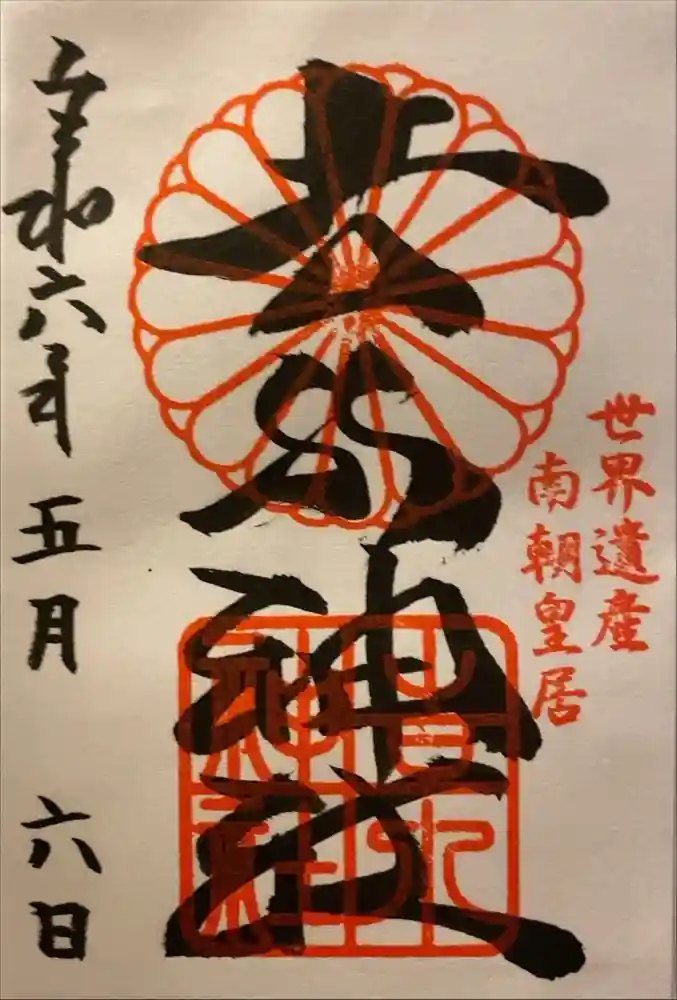 世界遺産
南朝皇居
吉水神社
吉水
神社
令和六年 五月 六日